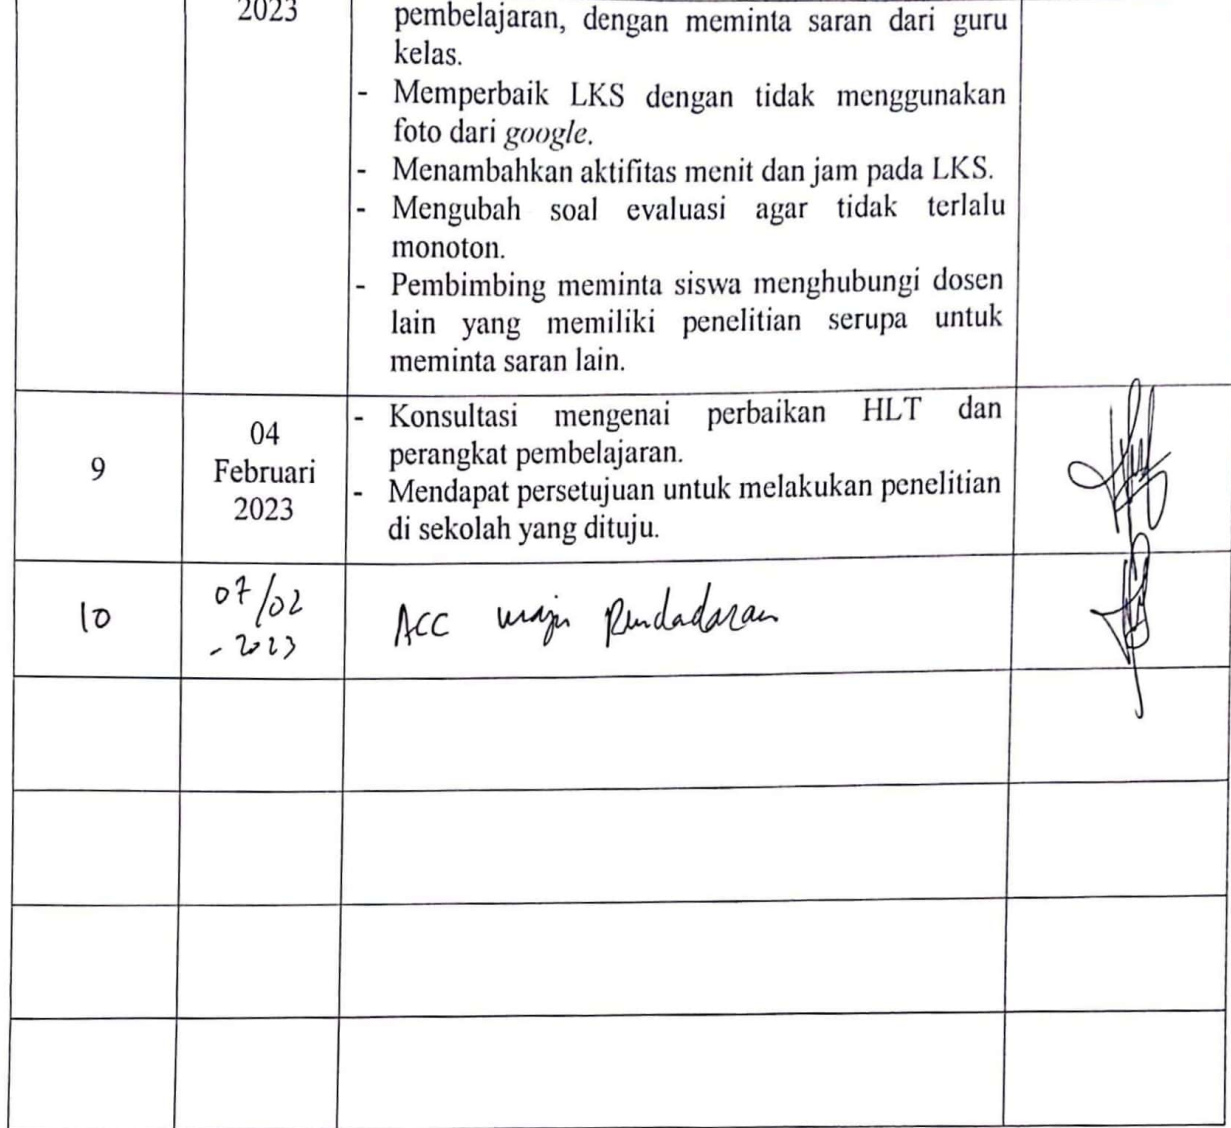 2023
pembelajaran, dengan meminta saran dari guru
kelas.
- Memperbaik LKS dengan tidak menggunakan
foto dari google.
- Menambahkan aktifitas menit dan jam pada LKS.
- Mengubah soal evaluasi agar tidak terlalu
monoton.
- Pembimbing meminta siswa menghubungi dosen
lain yang memiliki penelitian serupa untuk
meminta saran lain.
9
04
Februari
2023
- Konsultasi mengenai perbaikan HLT dan
perangkat pembelajaran.
- Mendapat persetujuan untuk melakukan penelitian
di sekolah yang dituju.
10
07/02
- 2023
ACC maju Pendadaran